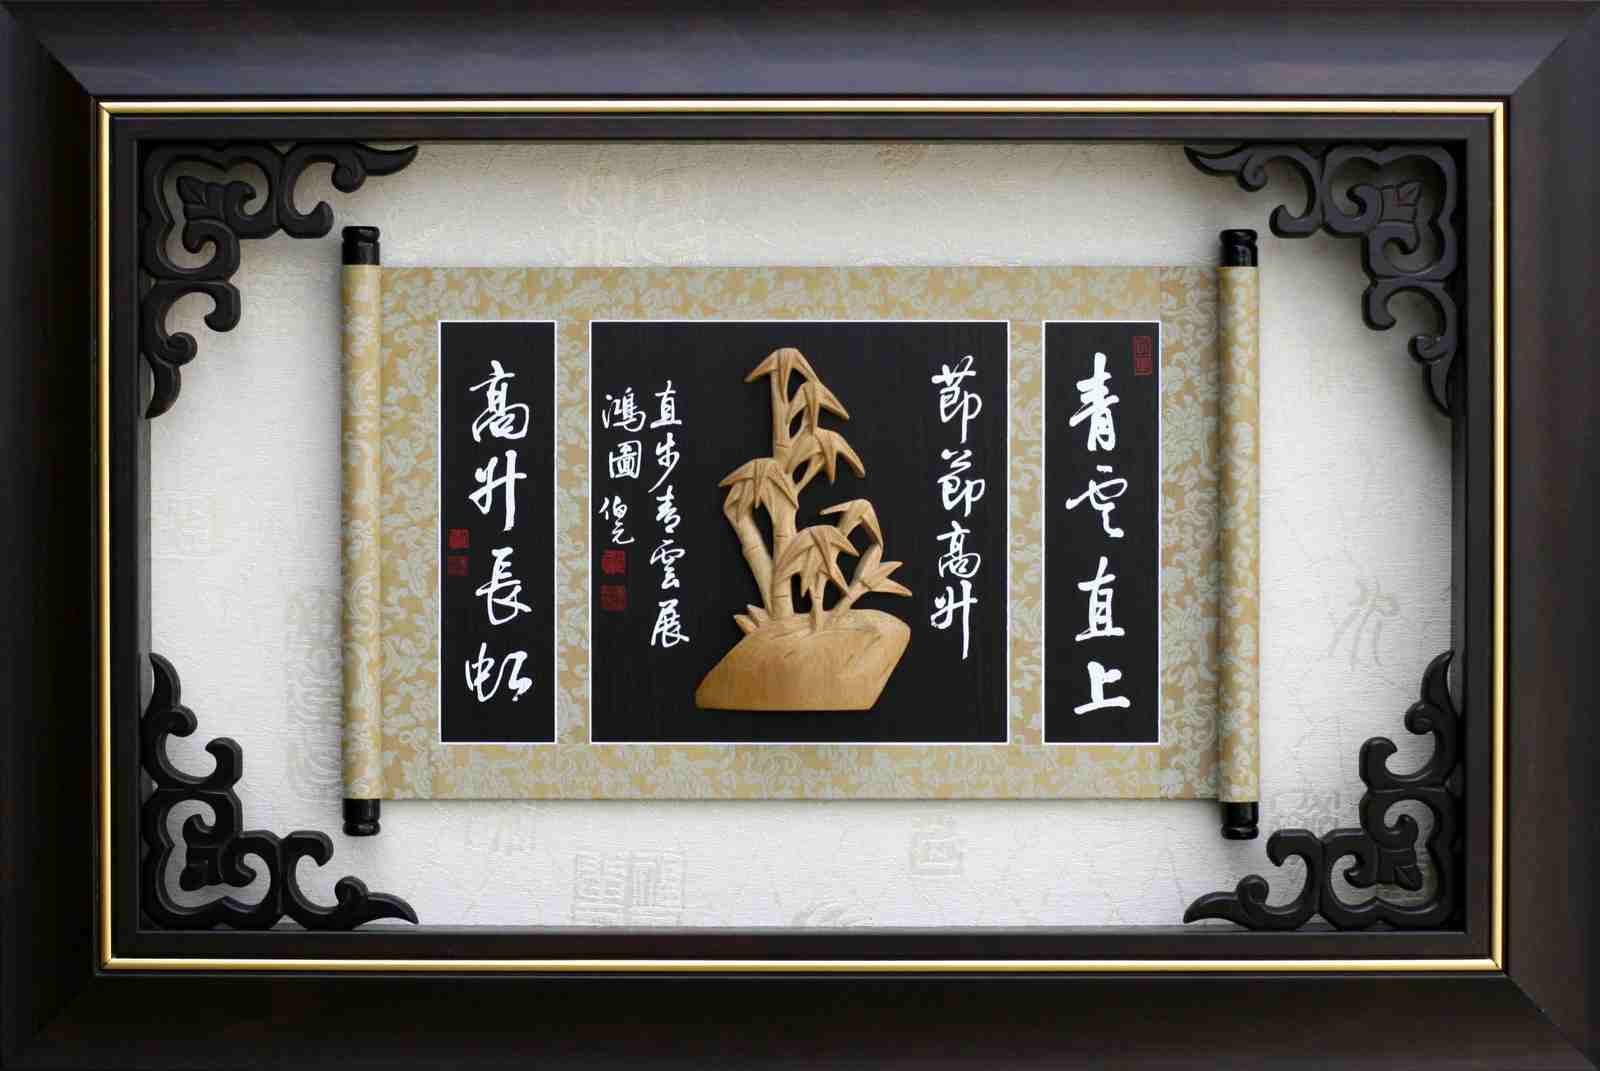 青雲直上
節節高升
直步青雲展
鴻圖 伯元
高升長虹